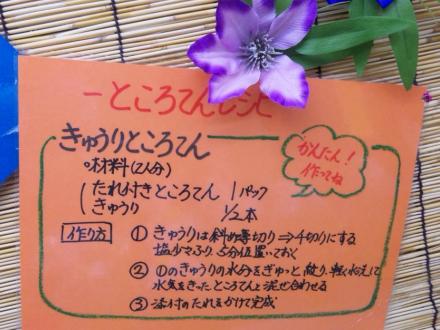 ーところてんレシピ
きゅうりところてん
かんたん!
作ってね
○材料(2人分)
たれ付きところてん 1パック
きゅうり 1/2本
作り方
① きゅうりは斜め薄切り⇒千切りにする
塩少々ふり、5分位置いておく
② ①のきゅうりの水分をぎゅっと絞り、軽く水洗いして
水気をきったところてんと混ぜ合わせる
③ 添付のたれをかけて完成